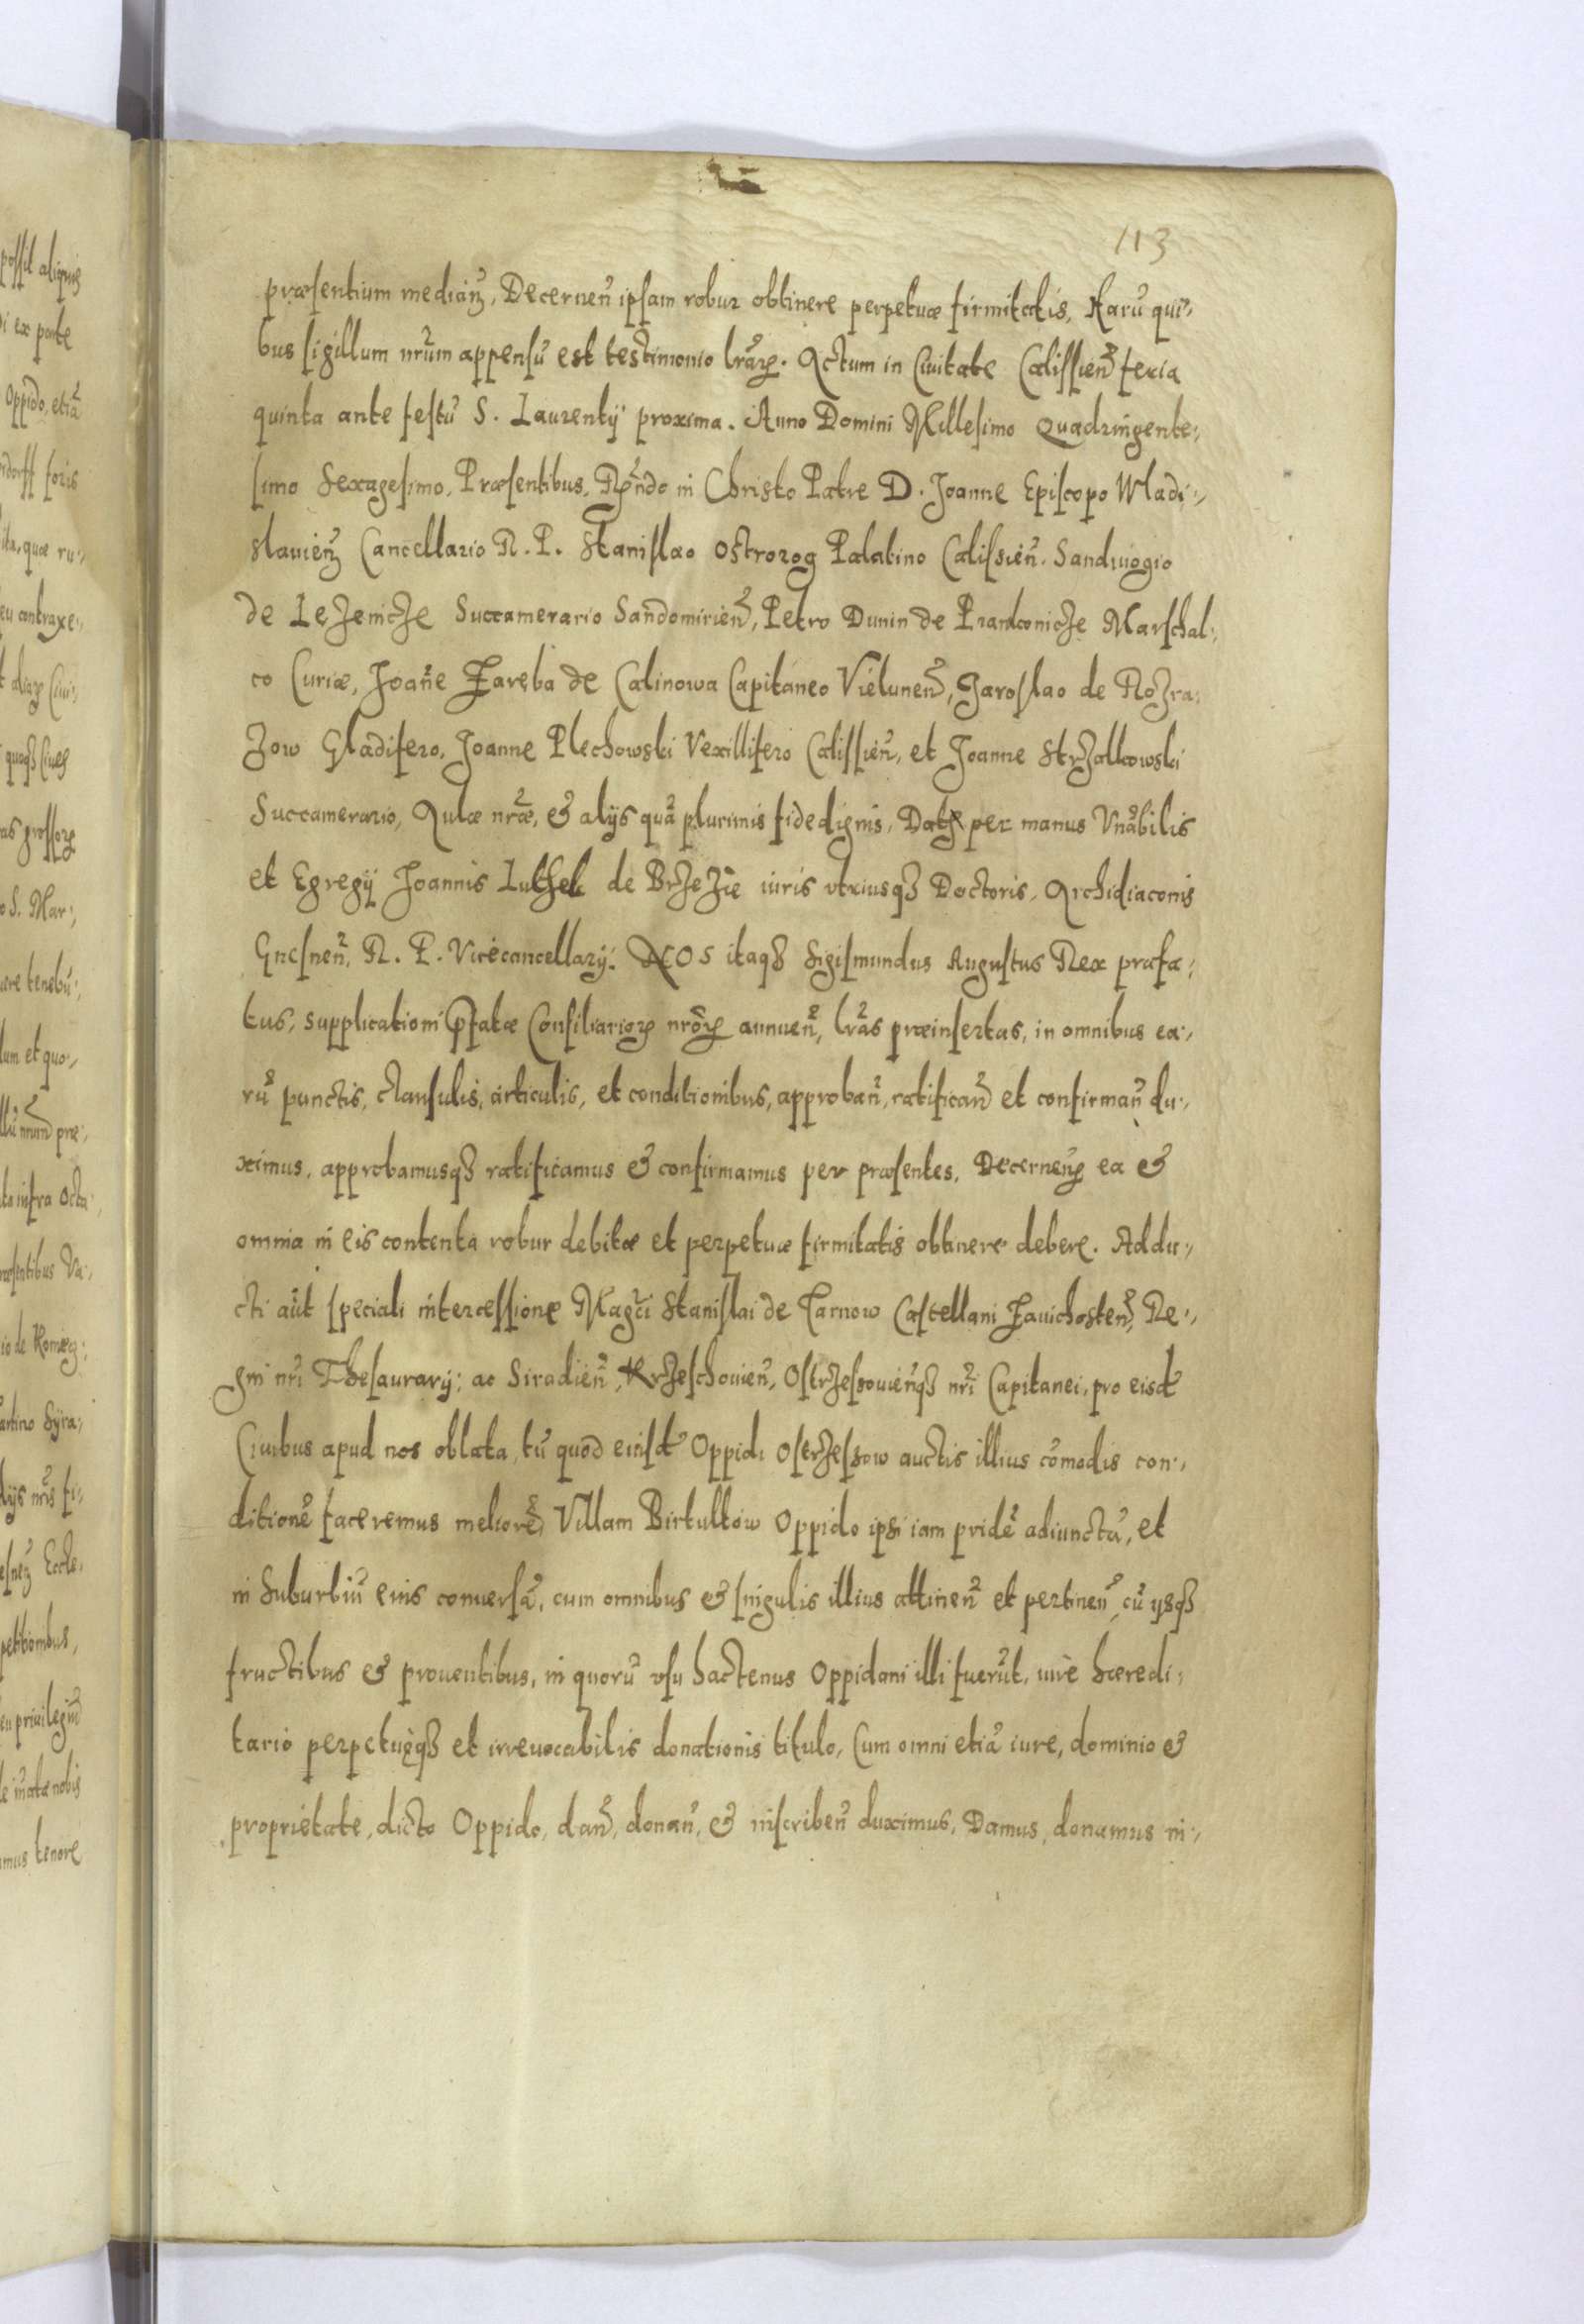 113
præsentium mediañ, Decerneñ ipsam robur obtinere perpetuæ firmitatis, Harũ qui-
bus sigillum nr̃um appensũ est testimonio lr̃aꝝ. Actum in Ciuitate Calissieñ feria
quinta ante festũ S. Laurentÿ proxima. Anno Domini Millesimo Quadringente-
simo Sexagesimo, Præsentibus, Rñdo in Christo Patre D. Joanne Episcopo Wladi-
slauieñ Cancellario R. P. Stanislao Ostrorog Palatino Calissieñ. Sandiuogio
de Lezenicze Succamerario Sandomirieñ, Petro Dunin de Prankonicze Marschal-
co Curiæ, Joañe Zareba de Calinowa Capitaneo Vieluneñ, Jaroslao de Rozra-
zow Gladifero, Joanne Plechowski Vexillifero Calissieñ, et Joanne Strzalkowski
Succamerario, Aulæ nr̃æ, & alÿs quã plurimis fidedignis, Datꝝ per manus Vnãbilis
et Egregÿ Joannis Luthek de Brzezie iuris vtriusqꝫ Doctoris, Archidiaconis
Gnesneñ, R. P. Vicecancellarÿ. NOS itaqꝫ Sigismundus Augustus Rex præfa-
tus, supplicationi p̃fatæ Consiliarioꝝ nr̃oꝝ annueñ, lr̃as præinsertas, in omnibus ea-
rũ punctis, clausulis, articulis, et conditionibus, approbañ, ratificañ et confirmañ du-
ximus, approbamusqꝫ ratificamus & confirmamus per præsentes, Decerneñ ea &
omnia in eis contenta robur debitæ et perpetuæ firmitatis obtinere debere. Addu-
cti aũt speciali intercessione Mag̃ci Stanislai de Tarnow Castellani Zauichosteñ, Re-
gni nr̃i Thesaurarÿ; ac Siradieñ, Krzeschouieñ, Ostrzessouieñqꝫ nr̃i Capitanei, pro eisd̃
Ciuibus apud nos oblata, tũ quod eiusd̃ Oppidi Ostrzessow auctis illius cõmodis con-
ditionẽ faceremus meliorẽ, Villam Birkulkow Oppido ipsi iam pridẽ adiunctã, et
in suburbiũ eius conuersã, cum omnibus & singulis illius attineñ et pertineñ, cũ ysqꝫ
fructibus & prouentibus, in quorũ vsu hactenus Oppidani illi fuerũt, iure hæredi-
tario perpetuęqꝫ et irreuocabilis donationis titulo, Cum omni etiã iure, dominio &
proprietate, dicto Oppido, dañ, donañ, & inscribeñ duximus, Damus, donamus in-